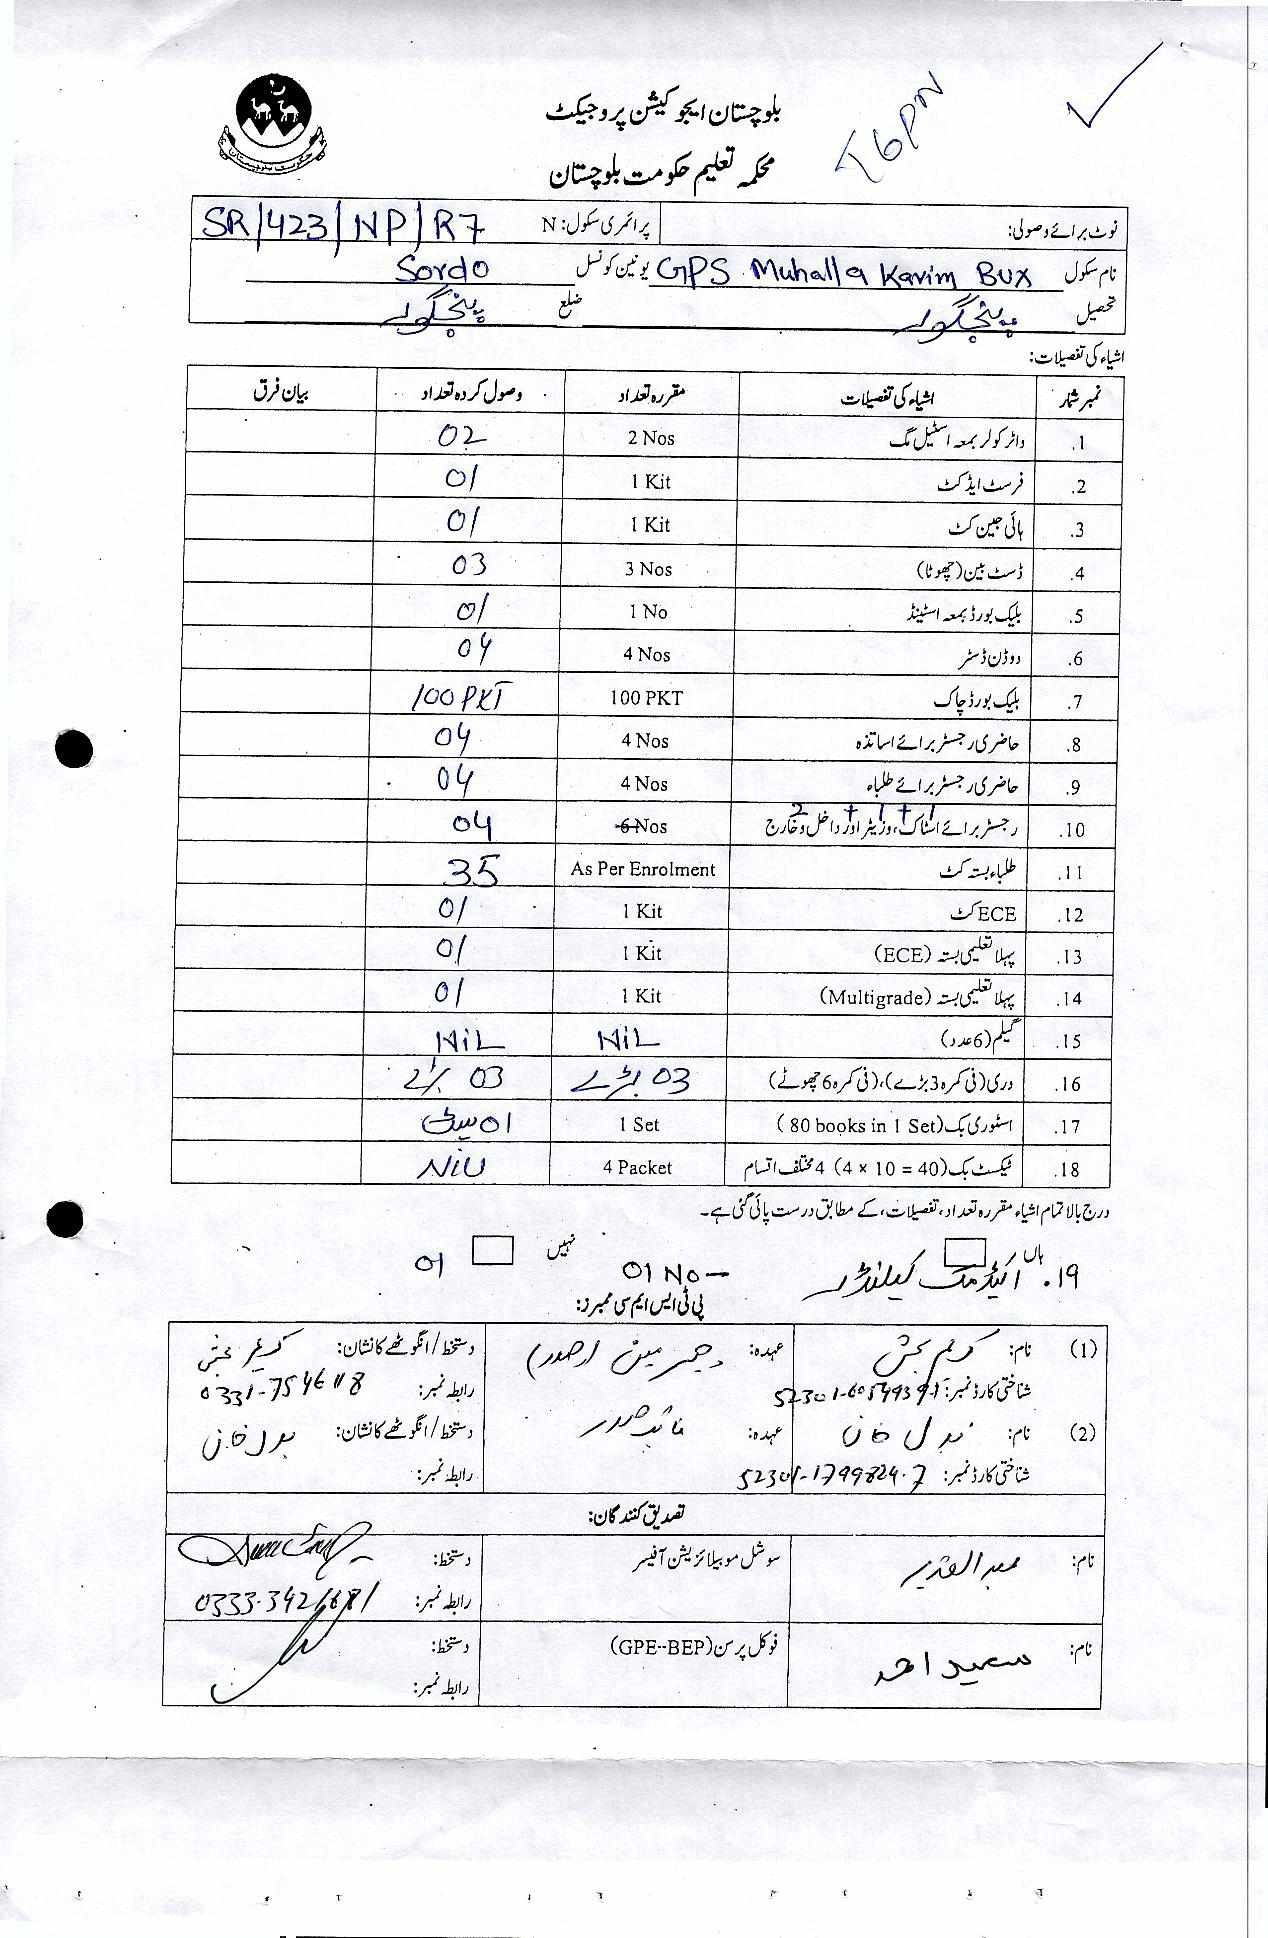 TGPN
بلوچستان ایجوکیشن پروجیکٹ
محکمہ تعلیم حکومت بلوچستان
حکومت بلوچستان
نوٹ برائے وصولی: پرائمری سکول: N SR/423/NP/R7
نام سکول GPS Muhalla Karim Bux یونین کونسل Sordo
تحصیل پنجگور ضلع پنجگور
اشیاء کی تفصیلات:
نمبر شمار اشیاء کی تفصیلات مقررہ تعداد وصول کردہ تعداد بیان فرق
1. واٹر کولر بمعہ اسٹیل مگ 2 Nos 02
2. فرسٹ ایڈ کٹ 1 Kit 01
3. ہائی جین کٹ 1 Kit 01
4. ڈسٹ بین (چھوٹا) 3 Nos 03
5. بلیک بورڈ بمعہ اسٹینڈ 1 No 01
6. ووڈن ڈسٹر 4 Nos 04
7. بلیک بورڈ چاک 100 PKT 100 PKT
8. حاضری رجسٹر برائے اساتذہ 4 Nos 04
9. حاضری رجسٹر برائے طلباء 4 Nos 04
10. رجسٹر برائے اسٹاک، وزیٹر اور داخل و خارج 2 + 1 + 1 6 Nos 04
11. طلباء بستہ کٹ As Per Enrolment 35
12. ECE کٹ 1 Kit 01
13. پہلا تعلیمی بستہ (ECE) 1 Kit 01
14. پہلا تعلیمی بستہ (Multigrade) 1 Kit 01
15. گلیم (6 عدد) NiL NiL
16. دری (فی کمرہ 3 بڑے)، (فی کمرہ 6 چھوٹے) 03 بڑے 03 بڑے
17. اسٹوری بک (80 books in 1 Set) 1 Set 01 سیٹ
18. ٹیکسٹ بک (4 x 10 = 40) 4 مختلف اقسام 4 Packet NiU
درج بالا تمام اشیاء مقررہ تعداد، تفصیلات، کے مطابق درست پائی گئی ہے۔
ہاں نہیں
19. اکیڈمک کیلنڈر 01 No 01
پی ٹی ایس ایم سی ممبرز:
(1) نام: کریم بخش عہدہ: چیرمین (صدر) دستخط/انگوٹھے کا نشان: کریم بخش
شناختی کارڈ نمبر: رابطہ نمبر:
(2) نام: عہدہ: نائب صدر دستخط/انگوٹھے کا نشان:
شناختی کارڈ نمبر: 52301-1799824-7 رابطہ نمبر:
تصدیق کنندگان:
نام: عبدالقدیر سوشل موبیلائزیشن آفیسر دستخط:
رابطہ نمبر:
نام: سعید احمد فوکل پرسن (GPE--BEP) دستخط:
رابطہ نمبر: